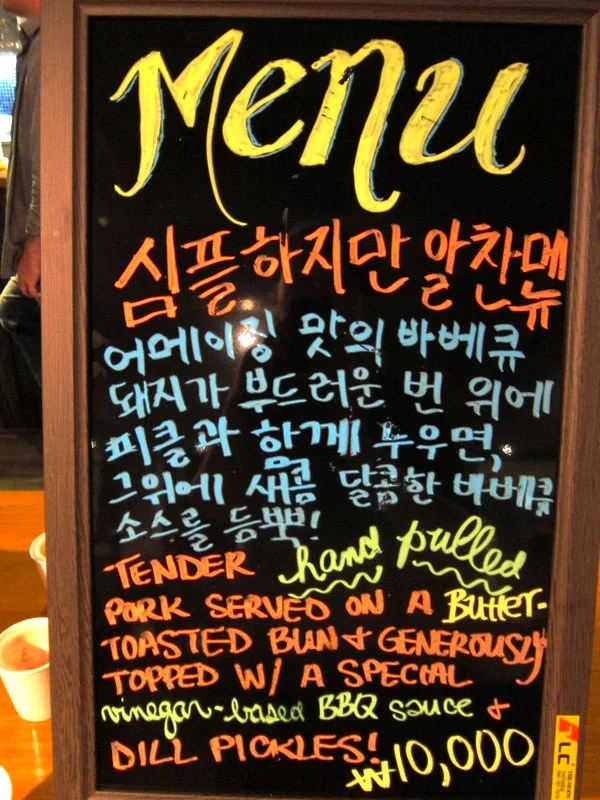 Menu
심플하지만 알찬메뉴
어메이징 맛의 바베큐
돼지가 부드러운 번 위에
피클과 함께 누우면,
그위에 새콤 달콤한 바베큐
소스를 듬뿍!
TENDER hand pulled
PORK SERVED ON A BUTTER-
TOASTED BUN & GENEROUSLY
TOPPED W/ A SPECIAL
vinegar-based BBQ sauce &
DILL PICKLES!
₩10,000
LC